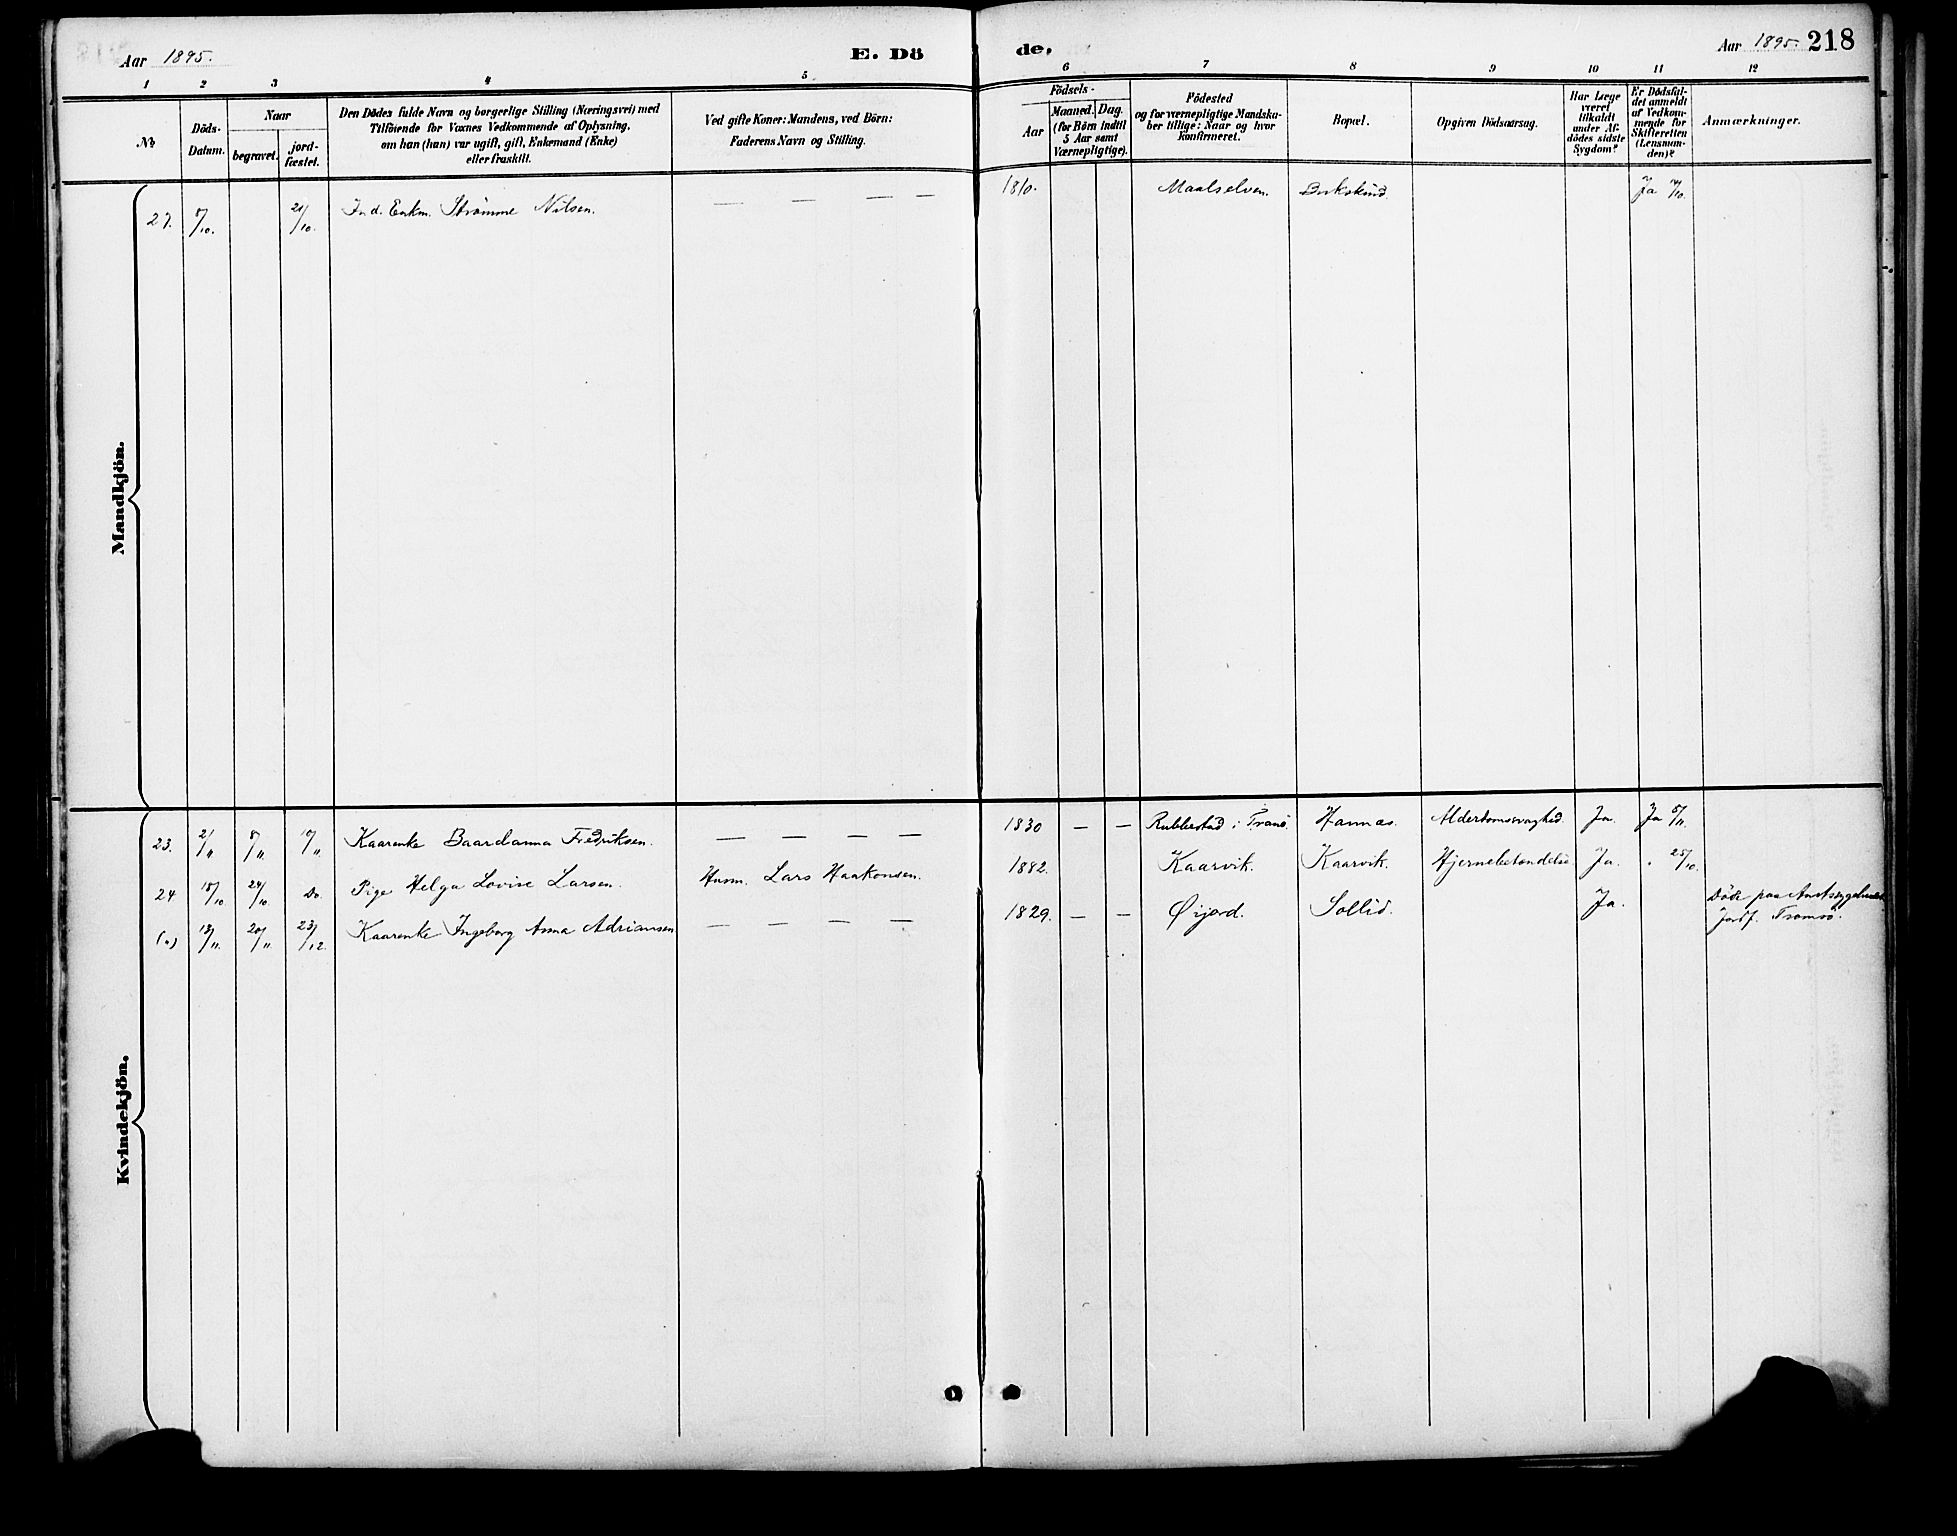 Aar 1895.
E. Dö
de,
Aar 1895. 218
1 2 3 4 5 6 7 8 9 10 11 12
№
Döds-
Datum.
Naar
begravet.
jord-
fæstet.
Den Dödes fulde Navn og borgerlige Stilling (Næringsvei) med
Tilföiende for Voxnes Vedkommende af Oplysning,
om han (hun) var ugift, gift, Enkemand (Enke)
eller fraskilt.
Ved gifte Koner: Mandens, ved Börn:
Faderens Navn og Stilling.
Födsels-
Aar
Maaned. Dag.
(for Börn indtil
5 Aar samt
Værnepligtige).
Födested
og for værnepligtige Mandska-
ber tillige: Naar og hvor
konfirmeret.
Bopæl.
Opgiven Dödsaarsag.
Har Læge
været
tilkaldt
under Af-
dödes sidste
Sygdom?
Er Dödsfal-
det anmeldt
af Vedkom-
mende for
Skifteretten
(Lensman-
den)?
Anmærkninger.
Mandkjön.
27. 21/10. Ind. Enkm. Strømme Nilsen. — — — — 1810. Maalselven. Ja
Kvindekjön.
23. 2/11 8/11. Kaarenke Baardanna Fredriksen. — — — — 1830 — — Rubbestad i Tranö. Hannæs. Alderdomssvaghed. Ja. Ja
24 15/10. 24/10. Do. Pige Helga Lovise Larsen. Husm. Lars Haakonsen. 1882. Kaarvik. Kaarvik. Hjernebetændelse Ja. " 25/10.
20/11. 23/12. Kaarenke Ingeborg Anna Adriansen — — — — 1829. — — Øijord. Sollid. Ja. Döde paa Amtssygehuset
Jordf. Tromsö.